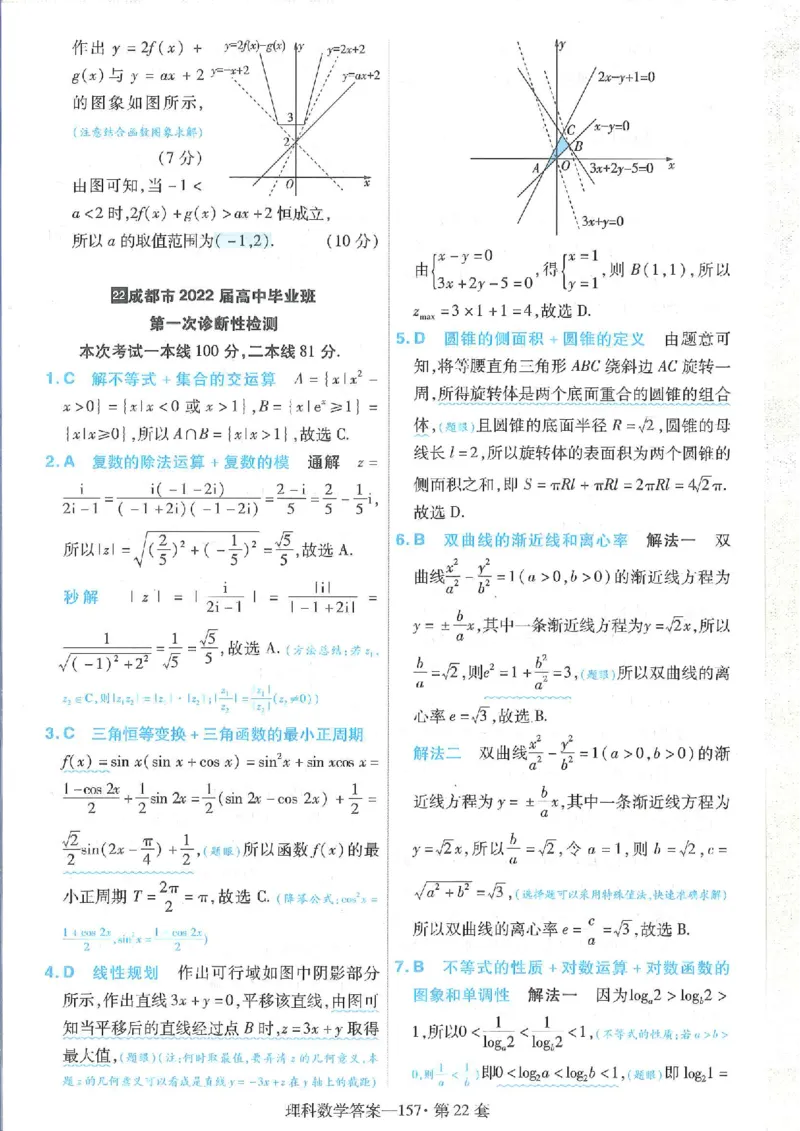 作出 y = 2f(x) +
g(x)与 y = ax + 2
的图象如图所示，
(注意结合函数图象求解)
(7分)
由图可知,当 -1 <
a<2时,2f(x)+g(x)>ax+2恒成立,
所以 a 的取值范围为(-1,2). (10分)
y=2f(x)-g(x)
y
y=2x+2
y=-x+2
y=ax+2
3
2
O
x
22成都市2022届高中毕业班
第一次诊断性检测
本次考试一本线100分,二本线81分.
1.C 解不等式+集合的交运算 A={x|x²-
x>0}={x|x<0或x>1},B={x|eˣ≥1}=
{x|x≥0},所以A∩B={x|x>1},故选C.
2.A 复数的除法运算+复数的模 通解 z=
i/(2i-1)=i(-1-2i)/((-1+2i)(-1-2i))=(2-i)/5=2/5-1/5i,
所以|z|=√((2/5)²+(-1/5)²)=√5/5,故选A.
秒解 |z|=|i/(2i-1)|=|i|/|-1+2i|=
1/√((-1)²+2²)=1/√5=√5/5,故选A.(方法总结:若z₁,
z₂∈C,则|z₁z₂|=|z₁|·|z₂|;|z₁/z₂|=|z₁|/|z₂|(z₂≠0))
3.C 三角恒等变换+三角函数的最小正周期
f(x)=sin x(sin x+cos x)=sin²x+sin xcos x=
(1-cos 2x)/2+1/2sin 2x=1/2(sin 2x-cos 2x)+1/2=
√2/2sin(2x-π/4)+1/2,(题眼)所以函数f(x)的最
小正周期 T=2π/2=π,故选C.(降幂公式:cos²x=
(1+cos 2x)/2,sin²x=(1-cos 2x)/2)
4.D 线性规划 作出可行域如图中阴影部分
所示,作出直线3x+y=0,平移该直线,由图可
知当平移后的直线经过点B时,z=3x+y取得
最大值,(题眼)(注:何时取最值,要弄清z的几何意义,本
题z的几何意义可以看成是直线y=-3x+z在y轴上的截距)
y
2x-y+1=0
C
x-y=0
B
A
O
3x+2y-5=0
x
3x+y=0
由{x-y=0 3x+2y-5=0,得{x=1 y=1,则B(1,1),所以
zmax=3×1+1=4,故选D.
5.D 圆锥的侧面积+圆锥的定义 由题意可
知,将等腰直角三角形ABC绕斜边AC旋转一
周,所得旋转体是两个底面重合的圆锥的组合
体,(题眼)且圆锥的底面半径R=√2,圆锥的母
线长l=2,所以旋转体的表面积为两个圆锥的
侧面积之和,即S=πRl+πRl=2πRl=4√2π.
故选D.
6.B 双曲线的渐近线和离心率 解法一 双
曲线x²/a²-y²/b²=1(a>0,b>0)的渐近线方程为
y=±b/a x,其中一条渐近线方程为y=√2x,所以
b/a=√2,则e²=1+b²/a²=3,(题眼)所以双曲线的离
心率e=√3,故选B.
解法二 双曲线x²/a²-y²/b²=1(a>0,b>0)的渐
近线方程为y=±b/a x,其中一条渐近线方程为
y=√2x,所以b/a=√2,令a=1,则b=√2,c=
√(a²+b²)=√3,(选择题可以采用特殊值法,快速准确求解)
所以双曲线的离心率e=c/a=√3,故选B.
7.B 不等式的性质+对数运算+对数函数的
图象和单调性 解法一 因为logₐ2>log_b2>
1,所以0<1/logₐ2<1/log_b2<1,(不等式的性质:若a>b>
0,则1/a<1/b)即0<log₂a<log₂b<1,(题眼)即log₂1=
理科数学答案—157·第22套